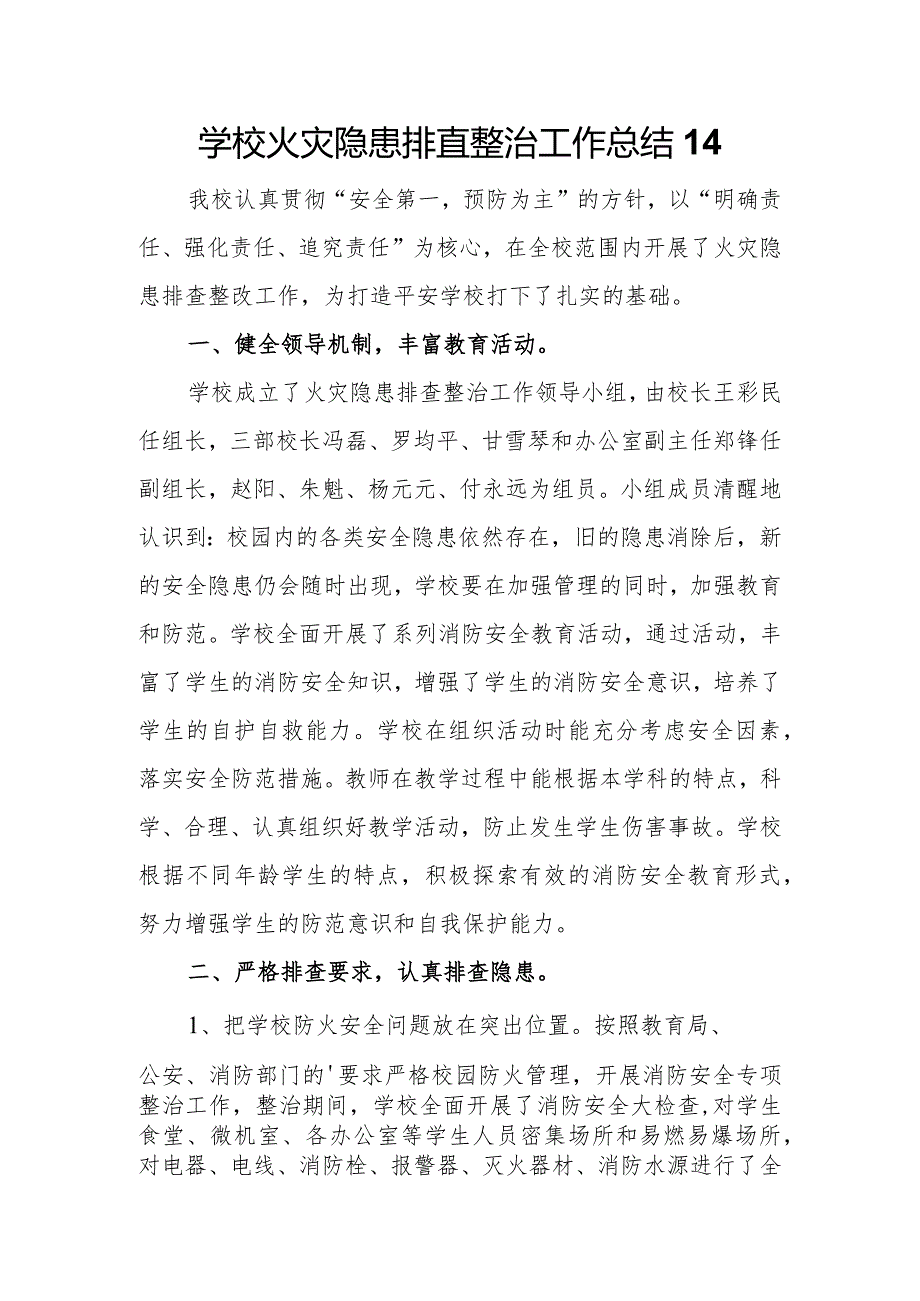 学校火灾隐患排直整治工作总结14
我校认真贯彻“安全第一，预防为主”的方针，以“明确责
任、强化责任、追究责任”为核心，在全校范围内开展了火灾隐
患排查整改工作，为打造平安学校打下了扎实的基础。
一、健全领导机制，丰富教育活动。
学校成立了火灾隐患排查整治工作领导小组，由校长王彩民
任组长，三部校长冯磊、罗均平、甘雪琴和办公室副主任郑锋任
副组长，赵阳、朱魁、杨元元、付永远为组员。小组成员清醒地
认识到：校园内的各类安全隐患依然存在，旧的隐患消除后，新
的安全隐患仍会随时出现，学校要在加强管理的同时，加强教育
和防范。学校全面开展了系列消防安全教育活动，通过活动，丰
富了学生的消防安全知识，增强了学生的消防安全意识，培养了
学生的自护自救能力。学校在组织活动时能充分考虑安全因素，
落实安全防范措施。教师在教学过程中能根据本学科的特点，科
学、合理、认真组织好教学活动，防止发生学生伤害事故。学校
根据不同年龄学生的特点，积极探索有效的消防安全教育形式，
努力增强学生的防范意识和自我保护能力。
二、严格排查要求，认真排查隐患。
1、把学校防火安全问题放在突出位置。按照教育局、
公安、消防部门的'要求严格校园防火管理，开展消防安全专项
整治工作，整治期间，学校全面开展了消防安全大检查,对学生
食堂、微机室、各办公室等学生人员密集场所和易燃易爆场所，
对电器、电线、消防栓、报警器、灭火器材、消防水源进行了全